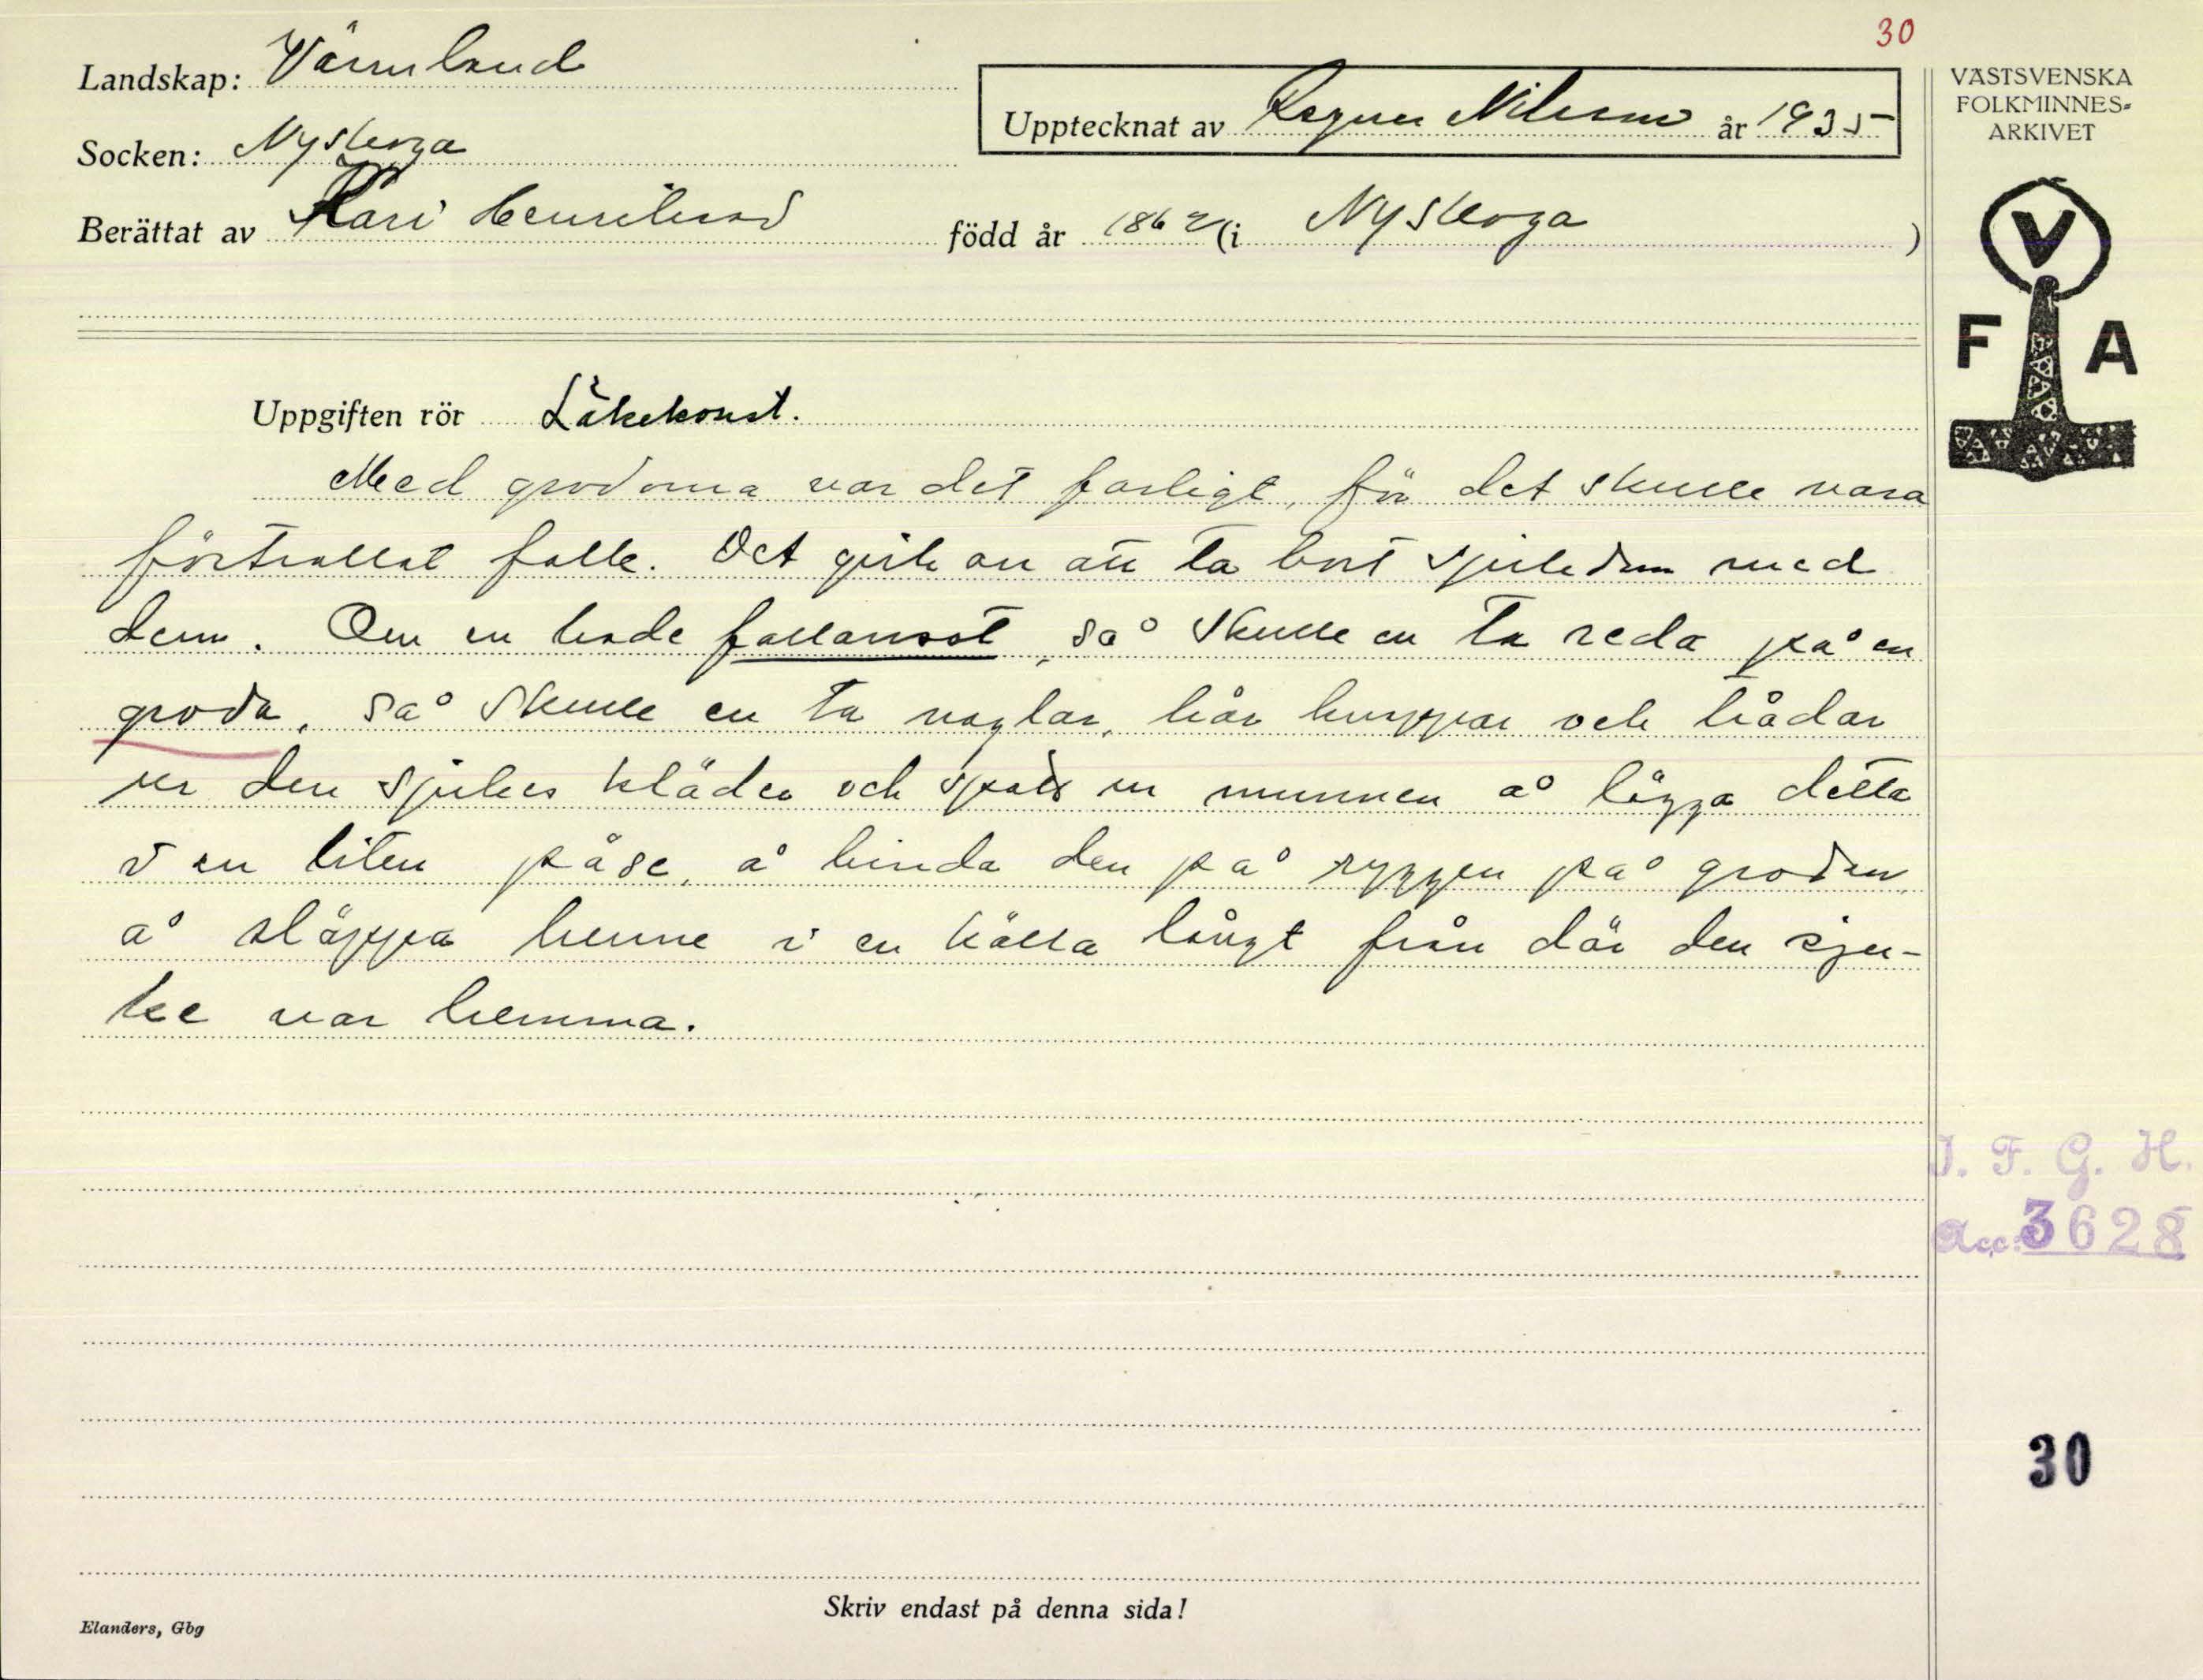 30
Landskap: Värmland
Upptecknat av Ragnar Nilsson år 1935
VÄSTSVENSKA
FOLKMINNES-
ARKIVET
Socken: Nyskoga
Berättat av Kari Henriksson född år 1862 (i Nyskoga )
V
F A
Uppgiften rör Läkekonst.
Med grodorna var det farligt, för det skulle vara
förtrollat folk. Det gick an att ta bort sjukdom med
dem. Om en hade fallansot, så skulle en ta reda på en
groda, så skulle en ta naglar, hår och trådar
ur den sjukes kläder och spott ur munnen å lägga detta
i en liten påse, å binda den på ryggen på grodan,
å släppa henne i en källa långt från där den sju-
ke var hemma.
I. F. G. H.
Acc. 3628
30
Skriv endast på denna sida!
Elanders, Gbg